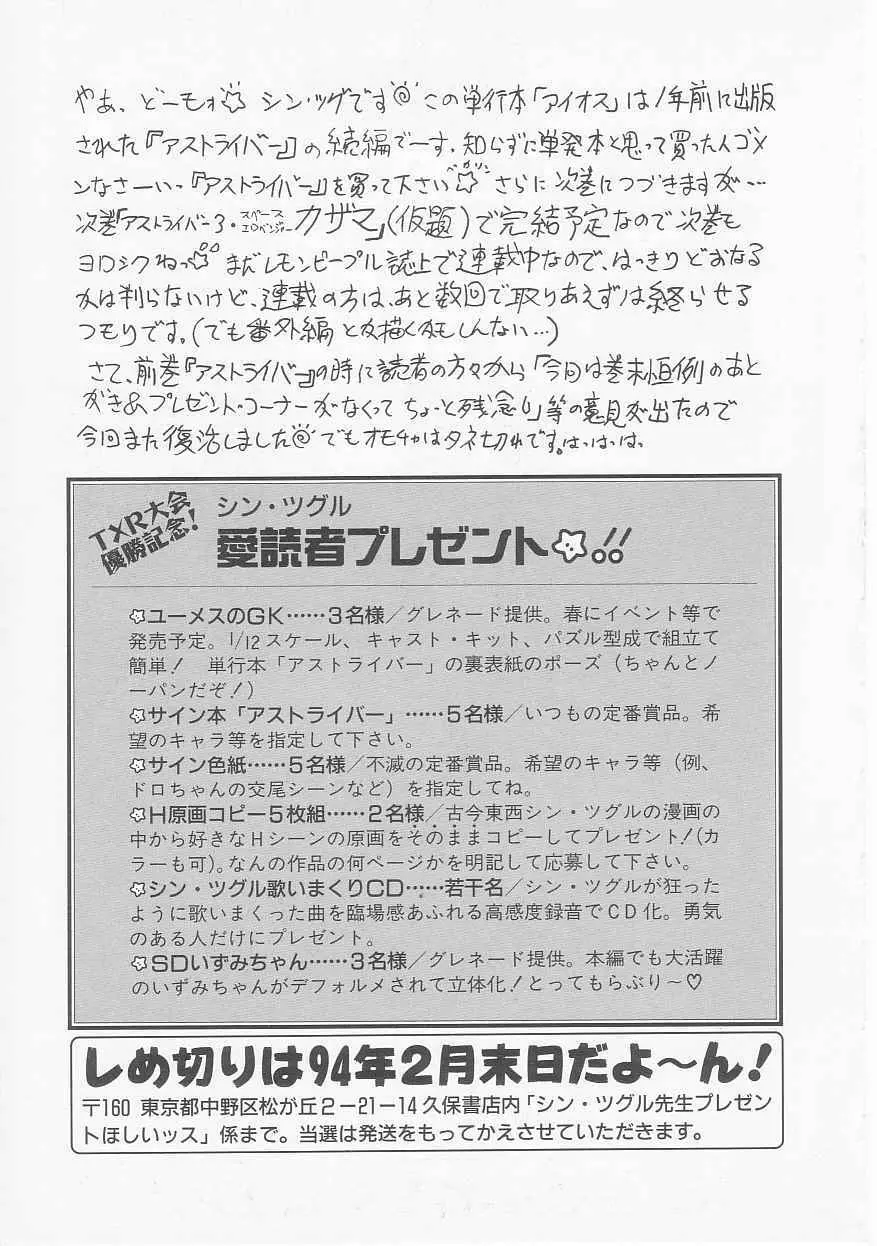 やあ、どーモォ☆ シン・ツグです この単行本「アイオス」は1年前に出版
された『アストライバー』の続編でーす。知らずに単発本と思って買った人ゴメ
ンなさーいっ『アストライバー』を買って下さい☆ さらに次巻につづきますが…
次巻「アストライバー3・スペースエロベンジャーカザマ」(仮題)で完結予定なので次巻も
ヨロシクねっ☆ まだレモンピープル誌上で連載中なので、はっきりどおなる
かは判らないけど、連載の方は、あと数回で取りあえずは終らせる
つもりです。(でも番外編とか描くかもしんない…)
さて、前巻『アストライバー』の時に読者の方々から「今回は巻末恒例のあと
がき&プレゼント・コーナーがなくってちょっと残念り」等の意見が出たので
今回また復活しました でもオモチャはタネ切れです。はっはっは、
TXR大会
優勝記念!
シン・ツグル
愛読者プレゼント☆!!
☆ユーメスのGK……3名様/グレネード提供。春にイベント等で
発売予定。1/12スケール、キャスト・キット、パズル型成で組立て
簡単! 単行本「アストライバー」の裏表紙のポーズ(ちゃんとノ
ーパンだぞ!)
☆サイン本「アストライバー」……5名様/いつもの定番賞品。希
望のキャラ等を指定して下さい。
☆サイン色紙……5名様/不滅の定番賞品。希望のキャラ等(例、
ドロちゃんの交尾シーンなど)を指定してね。
☆H原画コピー5枚組……2名様/古今東西シン・ツグルの漫画の
中から好きなHシーンの原画をそのままコピーしてプレゼント!(カ
ラーも可)。なんの作品の何ページかを明記して応募して下さい。
☆シン・ツグル歌いまくりCD……若干名/シン・ツグルが狂った
ように歌いまくった曲を臨場感あふれる高感度録音でCD化。勇気
のある人だけにプレゼント。
☆SDいずみちゃん……3名様/グレネード提供。本編でも大活躍
のいずみちゃんがデフォルメされて立体化!とってもらぶり〜♡
しめ切りは94年2月末日だよ〜ん!
〒160 東京都中野区松が丘2-21-14久保書店内「シン・ツグル先生プレゼン
トほしいッス」係まで。当選は発送をもってかえさせていただきます。